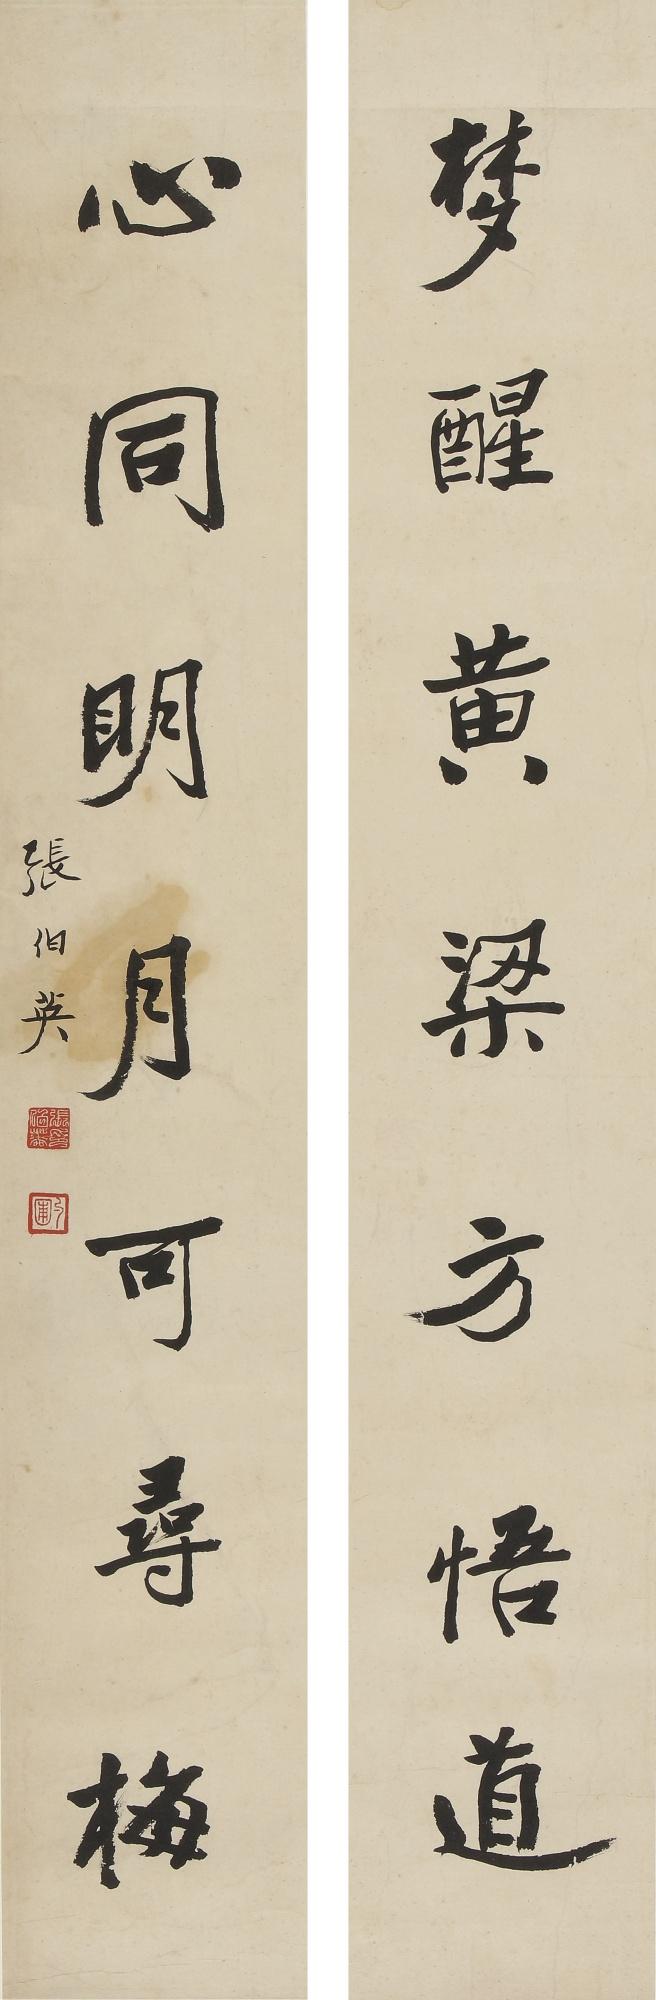 梦醒黄梁方悟道
心同明月可尋梅
張伯英